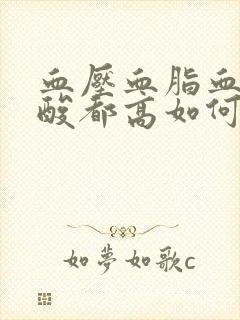 血壓血脂血
酸都高如何
如夢如歌c